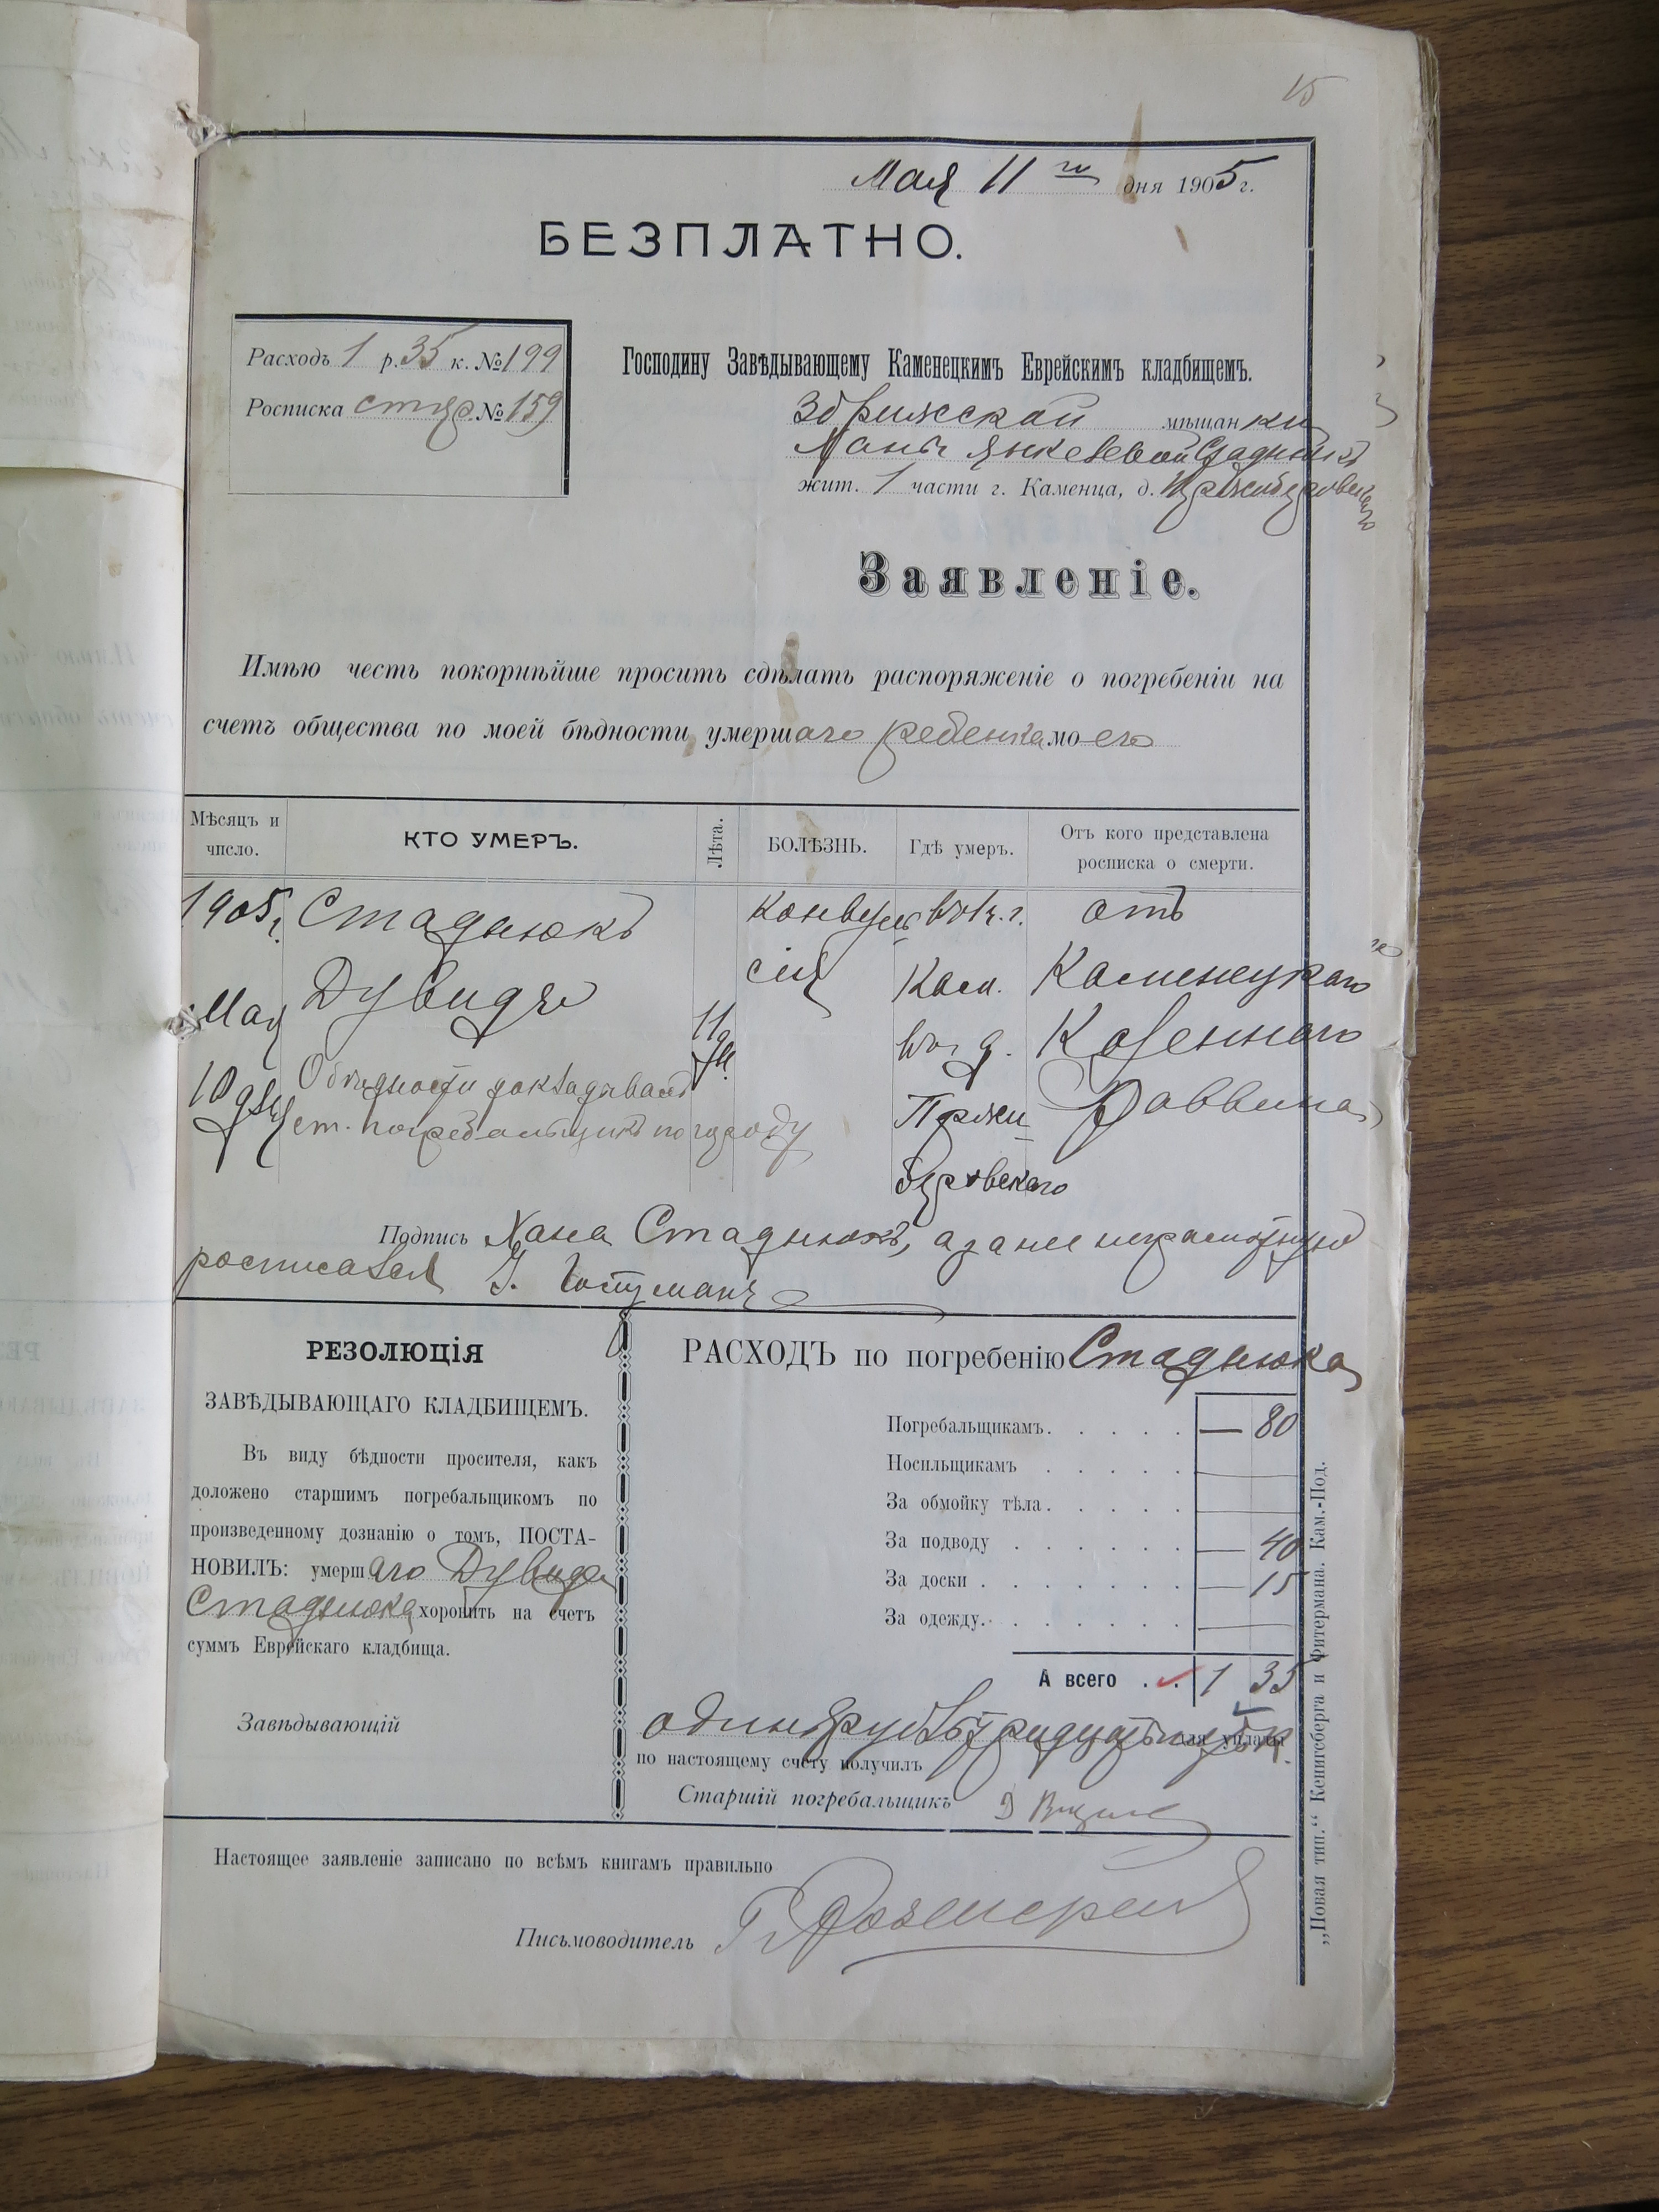 15
Мая 11го дня 1905 г.
БЕЗПЛАТНО.
Расходъ 1 р. 35 к. № 199
Росписка стар. № 159
Господину Завѣдывающему Каменецкимъ Еврейскимъ кладбищемъ.
Збрижской мѣщанки
Ханы Янкелевой Стаднюкъ
жит. 1 части г. Каменца, д. Пржибуровскаго
Заявленіе.
Имѣю честь покорнѣйше просить сдѣлать распоряженіе о погребеніи на
счетъ общества по моей бѣдности умершаго ребенка моего
Мѣсяцъ и число.
КТО УМЕРЪ.
Лѣта.
БОЛѢЗНЬ.
Гдѣ умеръ.
Отъ кого представлена росписка о смерти.
1905 г. Стаднюкъ конвуль въ г. отъ
Дувидъ сія Кам. Каменецкаго
Мая 11 м. въ д. Казеннаго
10 дня О бѣдности докладывалъ Пржи- Раввина
ст. погребальщикъ по городу
буровскаго
Подпись Хана Стаднюкъ, а за нее неграмотную
росписался
РЕЗОЛЮЦІЯ
ЗАВѢДЫВАЮЩАГО КЛАДБИЩЕМЪ.
Въ виду бѣдности просителя, какъ
доложено старшимъ погребальщикомъ по
произведенному дознанію о томъ, ПОСТА-
НОВИЛЪ: умершаго Дувида
Стаднюка хоронить на счетъ
суммъ Еврейскаго кладбища.
Завѣдывающій
РАСХОДЪ по погребенію Стаднюка
Погребальщикамъ. . . . . — 80
Носильщикамъ . . . . . —
За обмойку тѣла. . . . . —
За подводу . . . . . . — 40
За доски . . . . . . . — 15
За одежду. . . . . . . —
А всего . . 1 35
одинъ рубль тридцать пять к. для уплаты
по настоящему счету получилъ
Старшій погребальщикъ
Настоящее заявленіе записано по всѣмъ книгамъ правильно
Письмоводитель
„Новая тип.“ Кенигсберга и Фитермана. Кам.-Под.